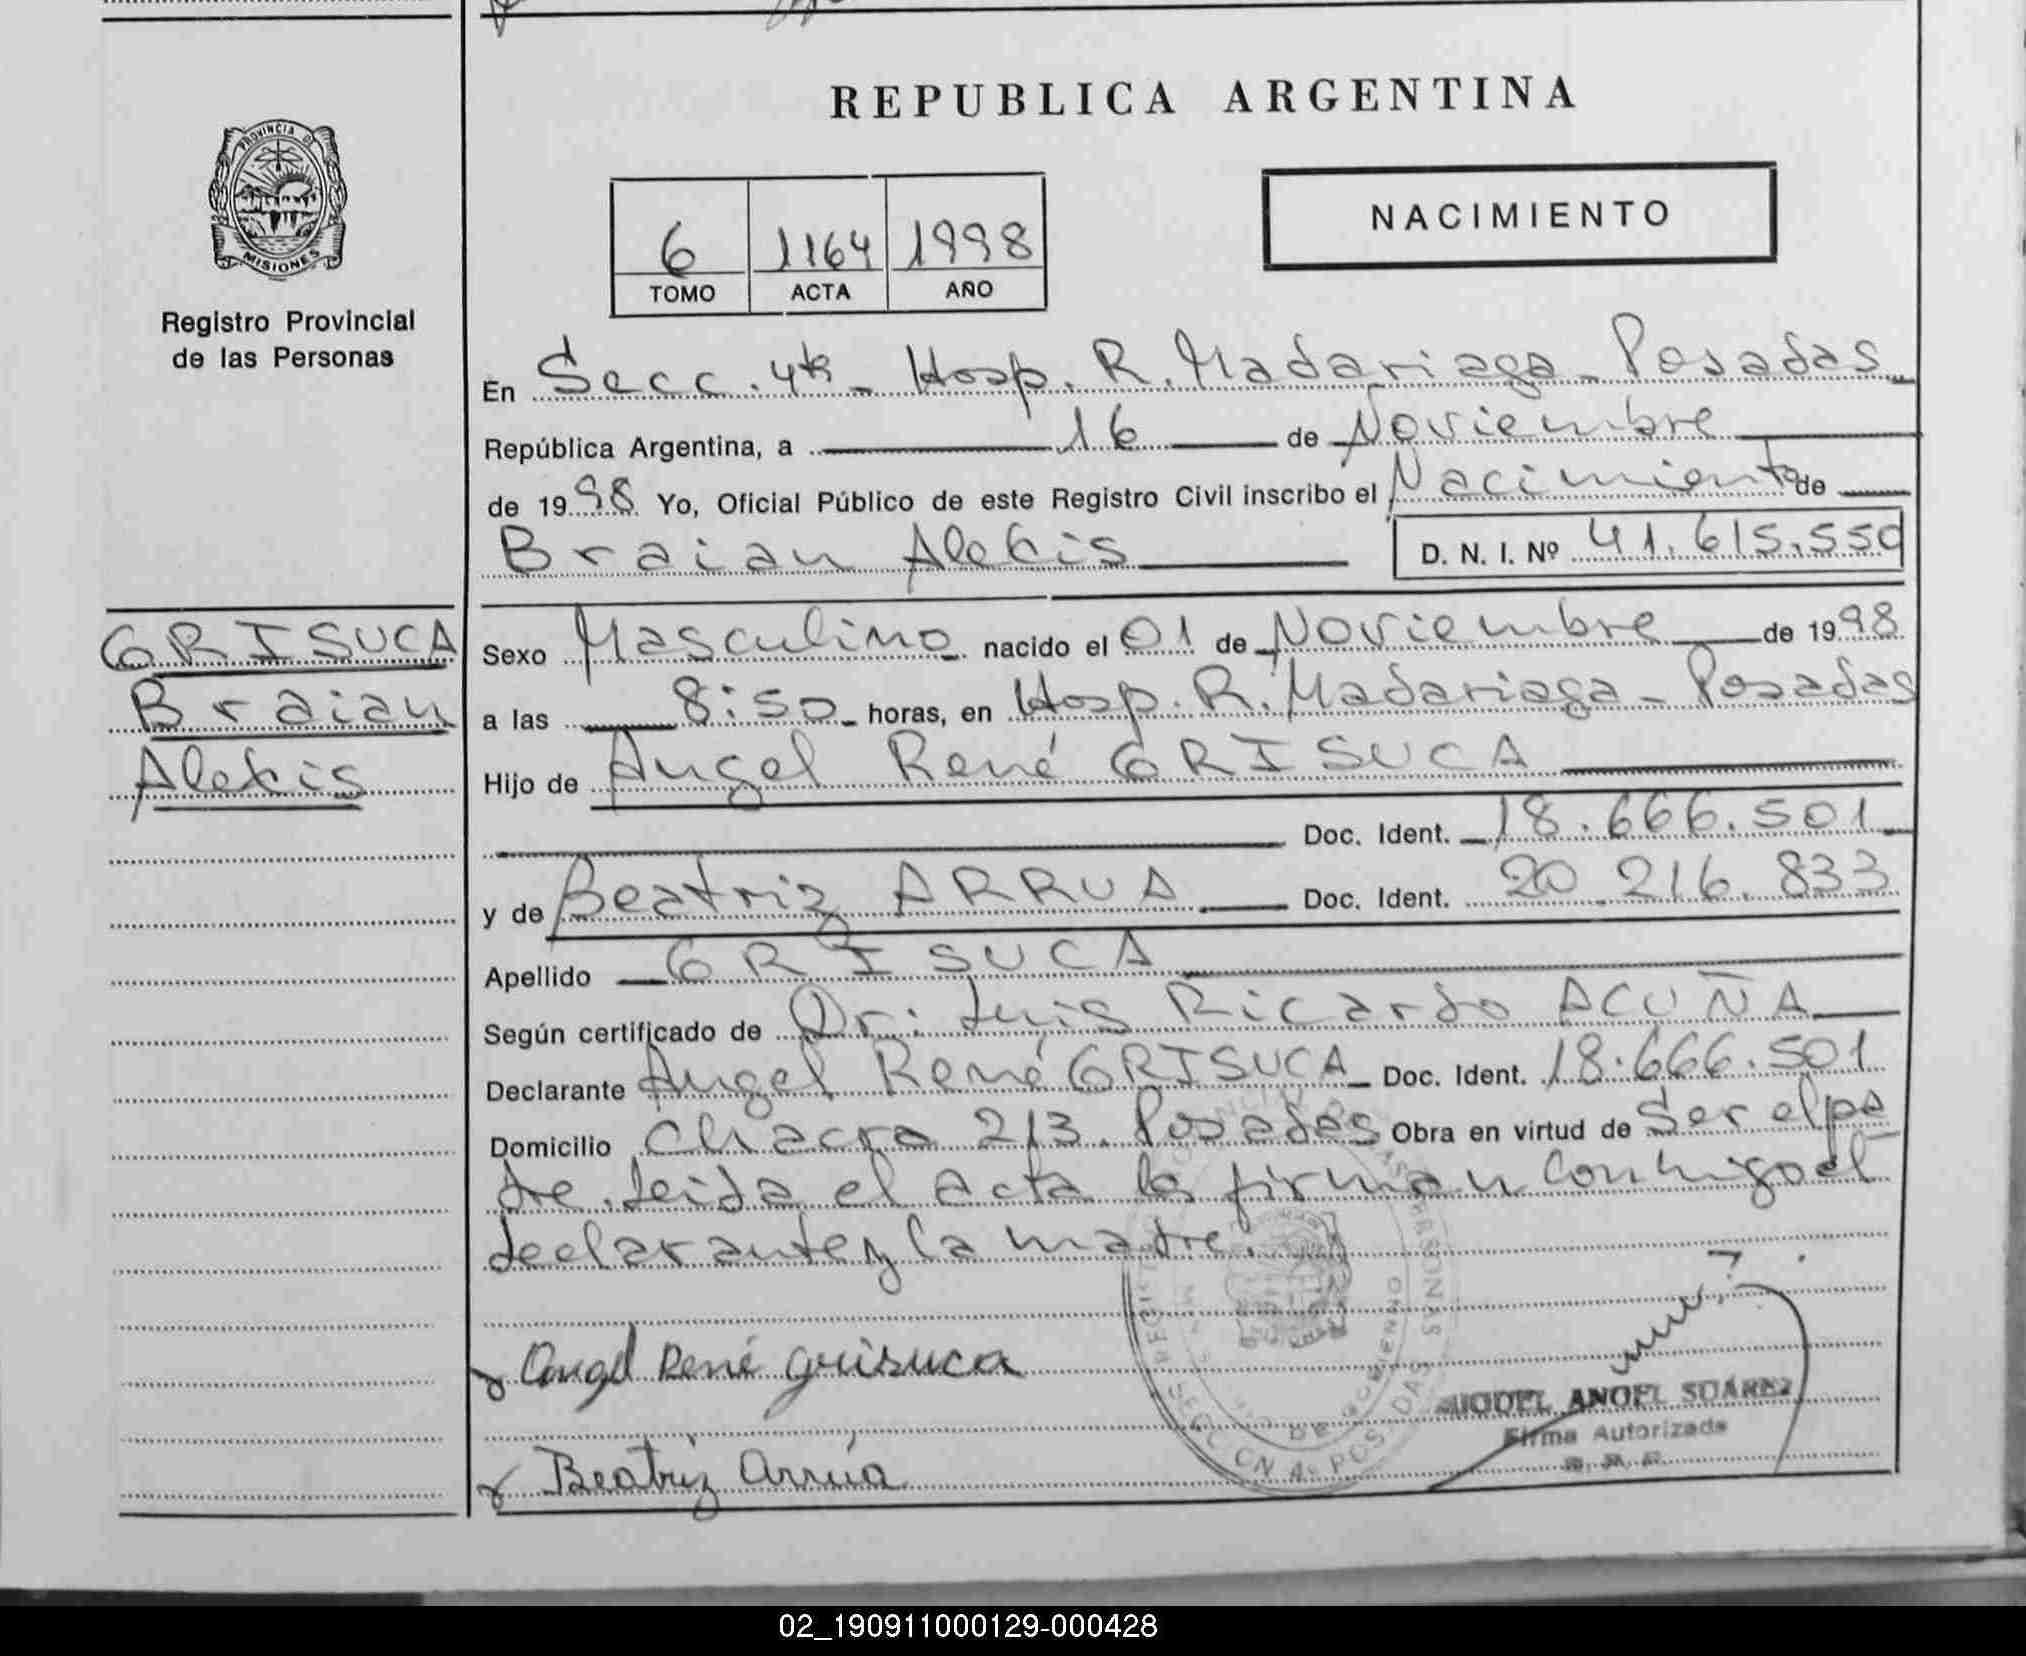 REPUBLICA ARGENTINA
PROVINCIA DE
MISIONES
Registro Provincial
de las Personas
6 1164 1998
TOMO ACTA AÑO
NACIMIENTO
En Secc. 4ta - Hosp. R. Madariaga - Posadas
República Argentina, a 16 de Noviembre
de 1998 Yo, Oficial Público de este Registro Civil inscribo el Nacimiento de
Braian Alexis D. N. I. Nº 41.615.550
GRISUCA
Braian
Alexis
Sexo Masculino nacido el 01 de Noviembre de 1998
a las 8:50 horas, en Hosp. R. Madariaga - Posadas
Hijo de Angel René GRISUCA
Doc. Ident. 18.666.501
y de Beatriz ARRUA Doc. Ident. 20.216.833
Apellido GRISUCA
Según certificado de Dr. Luis Ricardo ACUÑA
Declarante Angel René GRISUCA Doc. Ident. 18.666.501
Domicilio Chacra 213. Posadas Obra en virtud de ser el pa
dre. Leida el acta la firman conmigo el
declarante y la madre.
Angel René Grisuca
Beatriz Arrúa
SECCION 4a POSADAS
MIGUEL ANGEL SUÁREZ
Firma Autorizada
02_190911000129-000428